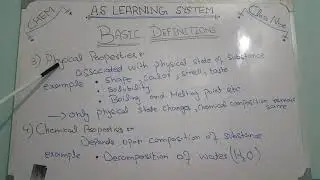 CHEM
AS LEARNING SYSTEM
Class Nine
BASIC DEFINITIONS
3) Physical Properties :-
Associated with physical state of substance
example • Shape, color, smell, taste
• Solubility
• Boiling and Melting point etc
→ only physical state changes, chemical composition remains
same
4) Chemical Properties :-
Depends upon composition of substance
example • Decomposition of water (H₂O)